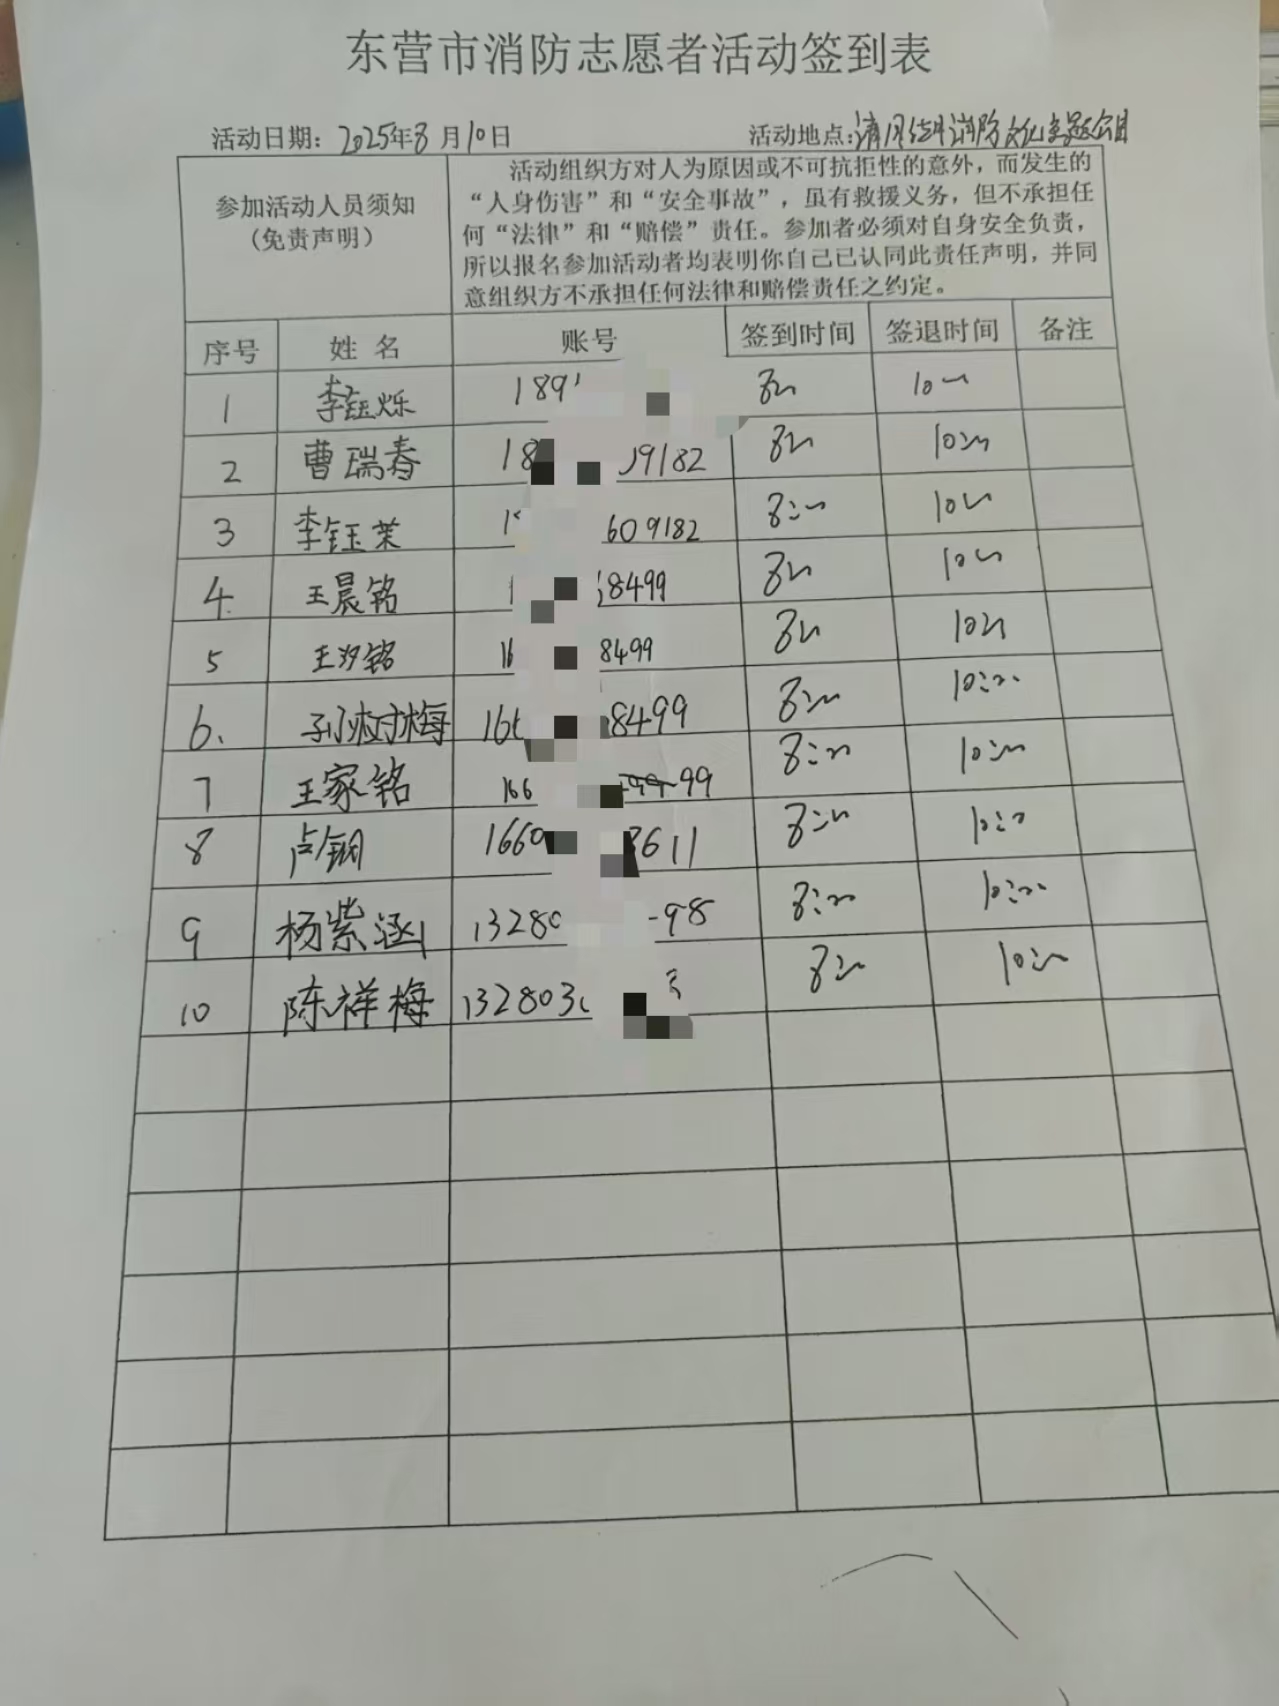 东营市消防志愿者活动签到表
活动日期：2025年8月10日 活动地点：清风红叶消防文化主题公园
参加活动人员须知
（免责声明）
活动组织方对人为原因或不可抗拒性的意外，而发生的
“人身伤害”和“安全事故”，虽有救援义务，但不承担任
何“法律”和“赔偿”责任。参加者必须对自身安全负责，
所以报名参加活动者均表明你自己已认同此责任声明，并同
意组织方不承担任何法律和赔偿责任之约定。
序号 姓名 账号 签到时间 签退时间 备注
1 李钰烁 189 8:00 10:00
2 曹瑞春 18 09182 8:00 10:00
3 李钰茉 609182 8:00 10:00
4. 王晨铭 8499 8:00 10:00
5 王汐铭 16 8499 8:00 10:00
6. 孙树梅 166 8499 8:00 10:00
7 王家铭 166 99 8:00 10:00
8 卢钢 1660 3611 8:00 10:00
9 杨紫涵 13280 98 8:00 10:00
10 陈祥梅 132803 8:00 10:00